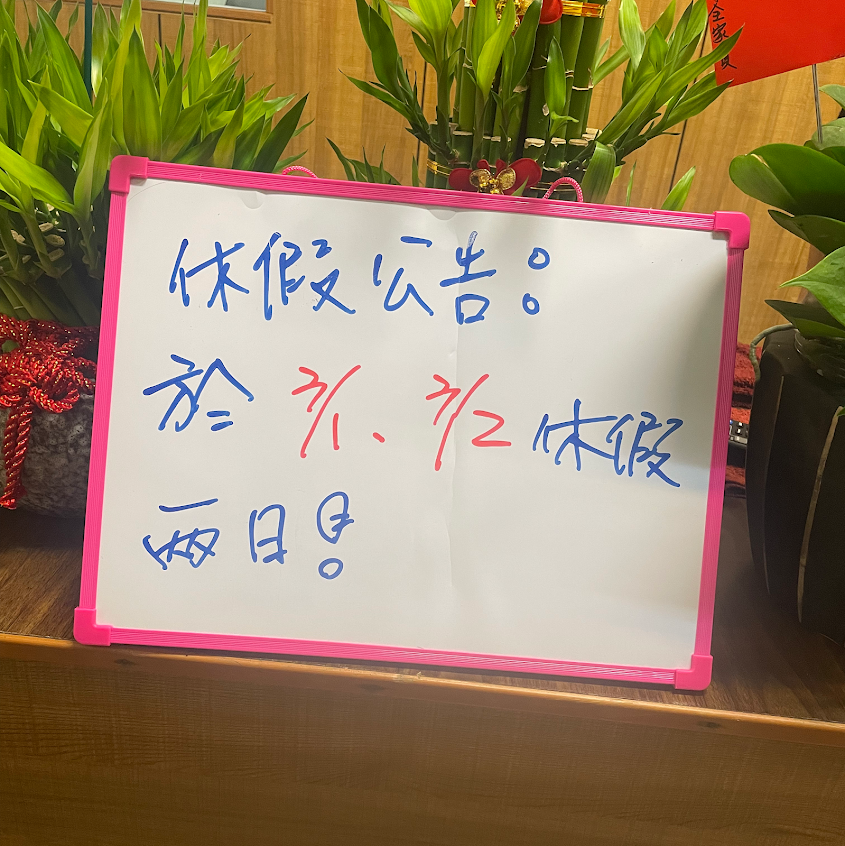 全家賀
休假公告:
於 7/1、7/2 休假
兩日!